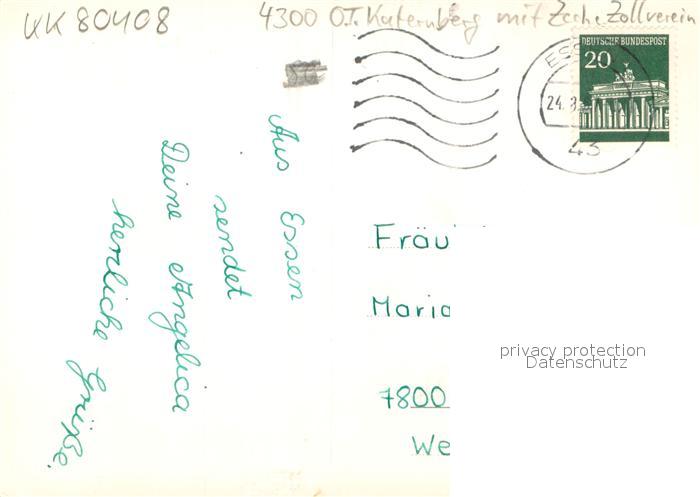 KK 80408
4300 O.T. Katernberg mit Zeche Zollverein
DEUTSCHE BUNDESPOST
20
ESS
24.8
43
Aus Essen
sendet
Deine Angelica
herzliche Grüße.
Fräu
Maria
7800
We
privacy protection
Datenschutz